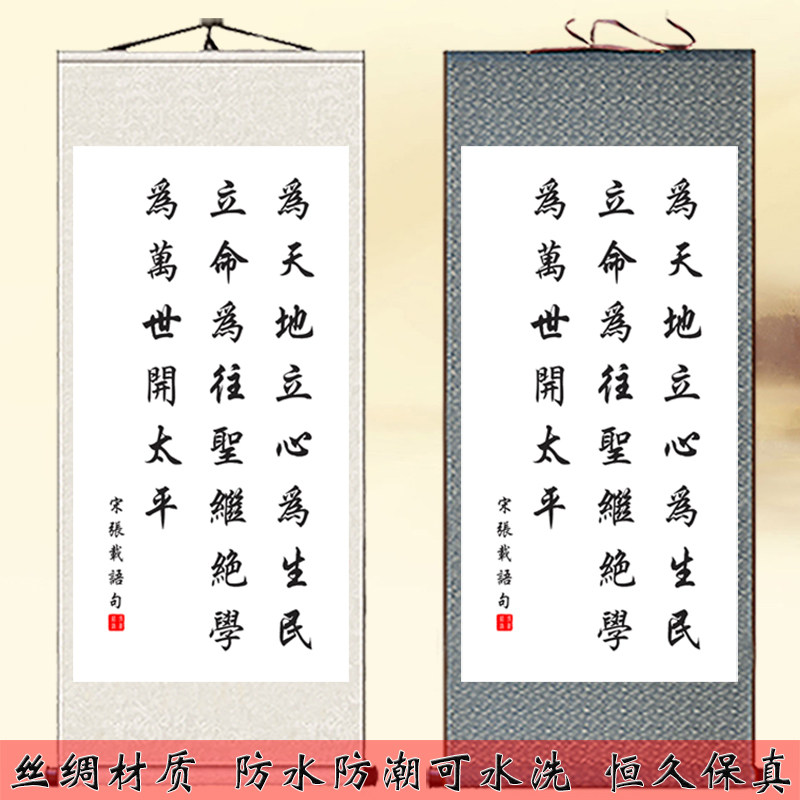 為天地立心為生民
立命為往聖繼絕學
為萬世開太平
宋張載語句
為天地立心為生民
立命為往聖繼絕學
為萬世開太平
宋張載語句
丝绸材质 防水防潮可水洗 恒久保真